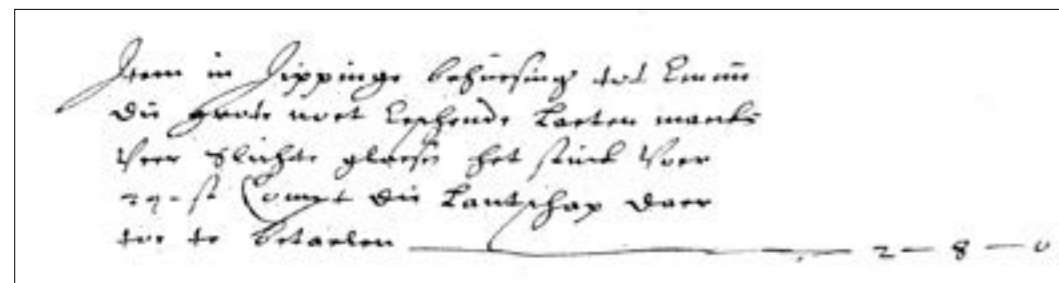 Item in Jippinge behuesing tot Emme
die grote noet
laeten maeken
veer slichte glaesen het stuck voer
st Compt die Lantschap daer
toe te betaelen 2 - 8 - 0